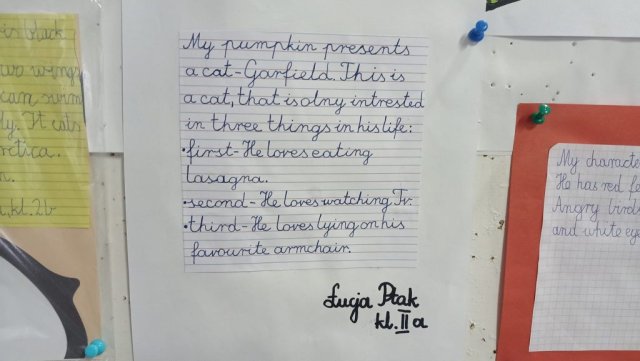 in black
two wings
can swim
ly. It eats
rctica.
n.
a, kl. 2b
My pumpkin presents
a cat - Garfield. This is
a cat, that is olny intrested
in three things in his life:
•first - He loves eating
lasagna.
•second - He loves watching Tv.
•third - He loves lying on his
favourite armchair.
Łucja Ptak
kl. II a
My characte
He has red fe
Angry birds
and white eye